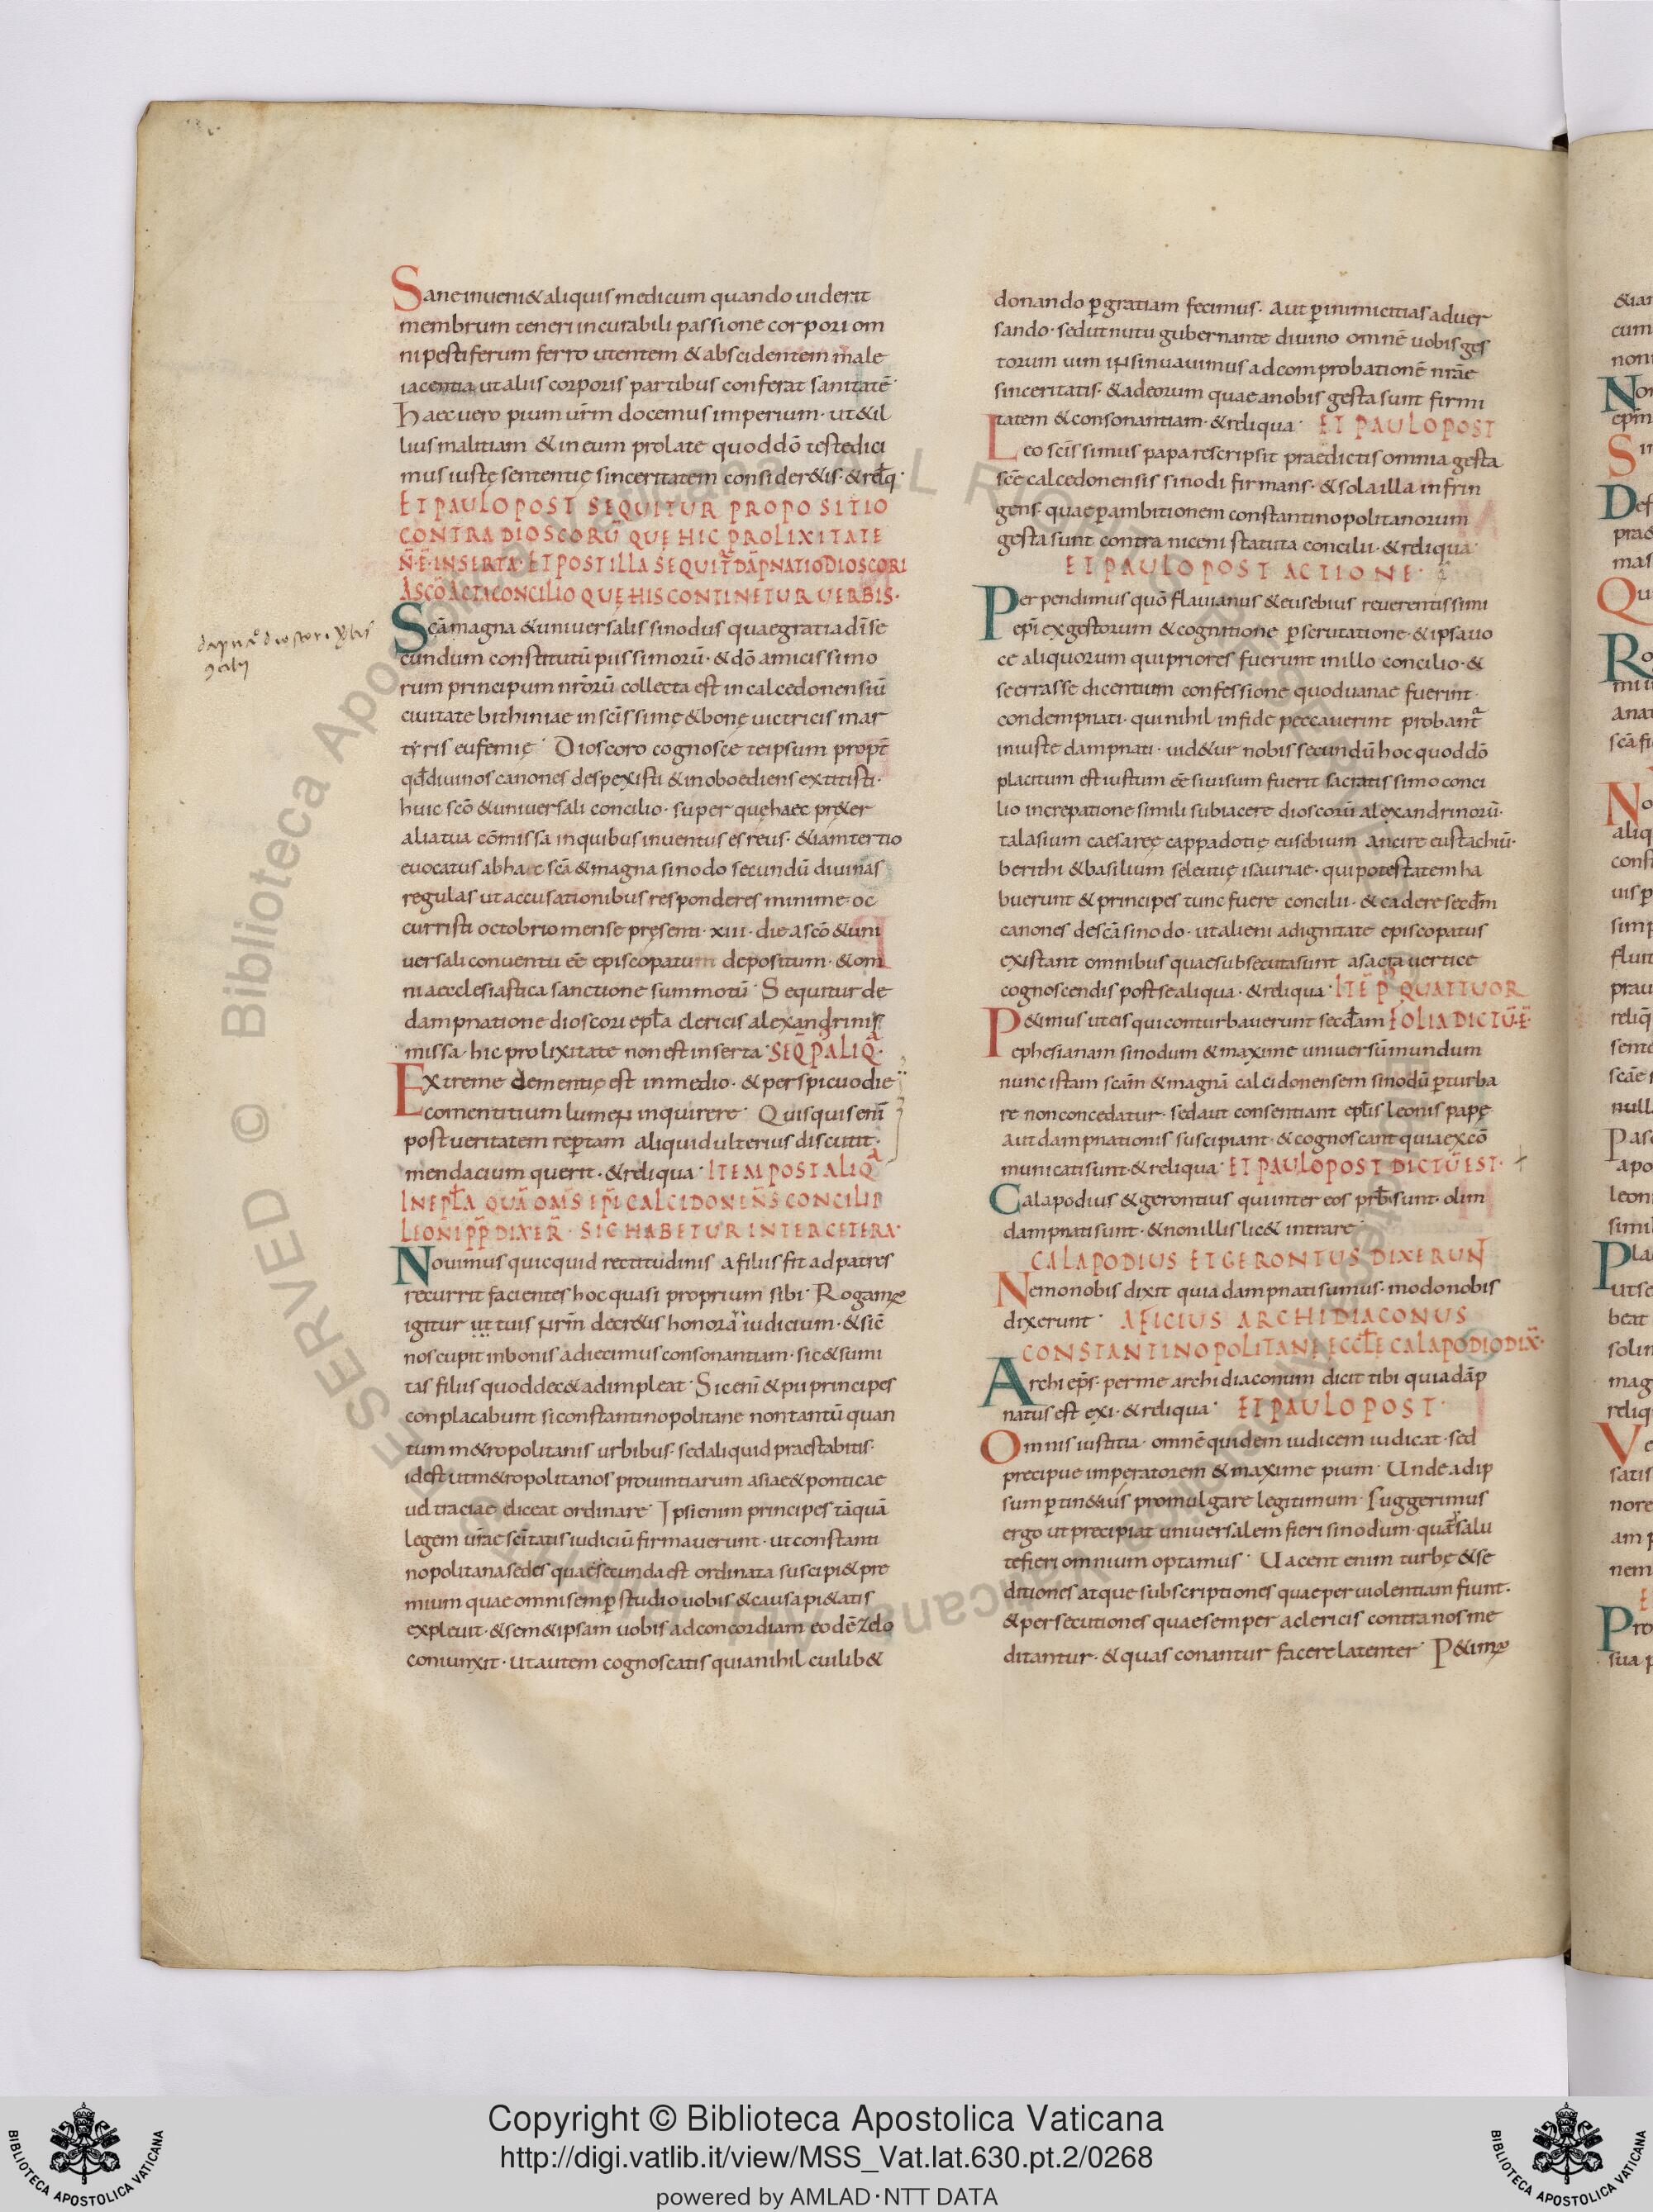 Sane inueni& aliquis medicum quando uiderit
membrum teneri incurabili passione corpori om
ni pestiferum ferro utentem & abscidentem male
iacentia ut aliis corporis partibus conferat sanitatē·
Haec uero pium ur̄m docemus imperium· ut & il
lius malitiam & in eum prolate quod dō teste dici
mus iustę sententię sinceritatem consider&is· & relq̄·
ET PAULO POST SEQUITUR PROPOSITIO
CONTRA DIOSCORŪ QUE HIC PROLIXITATE
N̄·Ē·INSERTA· ET POST ILLA SEQUIT̄ DĀPNATIO DIOSCORI
A SCŌ ACTA CONCILIO QUĘ HIS CONTINETUR UERBIS·
Scā magna & uniuersalis sinodus quae gratia dī se
cundum constitutū piissimorū· & dō amicissimo
rum principum nr̄orū collecta est in calcedonensiū
ciuitate bithiniae in scīssimę & bonę uictricis mar
tyris eufemię· Dioscoro cognosce teipsum propt̄
qd̄ diuinos canones despexisti & inoboediens extitisti·
huic scō & uniuersali concilio· super quę haec pr&er
alia tua cōmissa in quibus inuentus es reus· & iam tertio
euocatus ab hac scā & magna sinodo secundū diuinas
regulas ut accusationibus responderes minime oc
curristi octobrio mense pręsenti· xiii· die a scō & uni
uersali conuentu eē episcopatum depositum· & om
ni aecclesiastica sanctione summotū· Sequitur de
dampnatione dioscori epła clericis alexandrinis
missa· hic prolixitate non est inserta· SEQ̄ P̄ ALIQ̄·
Extreme dementię est in medio· & perspicuo die
comentitium lumen inquirere· Quisquis enī
post ueritatem rep̄tam aliquid ulterius discutit·
mendacium querit· & reliqua· ITEM POST ALIQ̄
IN EPŁA QUĀ OMS̄ EPĪ CALCIDONEN̄S CONCILII
LEONI PP̄ DIXER̄· SIC HABETUR INTER CETERA·
Nouimus quicquid rectitudinis a filiis fit ad patres
recurrit facientes hoc quasi proprium sibi· Rogamus
igitur ut tuis nr̄m decr&is honora iudicium· & sic̄
nos cupit in bonis adiecimus consonantiam· sic & sumi
tas filiis quod dec& adimpleat· Sic enī & pii principes
conplacabunt si constantinopolitane non tantū quan
tum m&ropolitanis urbibus· sed aliquid praestabitis·
id est ut m&ropolitanos prouintiarum asiae & ponticae
uel traciae diceat ordinare· Ipsi enim principes tāquā
legem ur̄ae scītatis iudiciū firmauerunt· ut constanti
nopolitana sedes quae secunda est ordinata suscipi& pre
mium quae omni semp̄ studio uobis & causa pi&atis
expleuit· & sem&ipsam uobis ad concordiam eodē zelo
coniunxit· Ut autem cognoscatis quia nihil cuilib&
donando p̄ gratiam fecimus· aut p̄ inimicitias aduer
sando· sed ut nutu gubernante diuino omnē uobis ges
torum uim insinuauimus ad comprobationē nr̄ae
sinceritatis· & ad eorum quae a nobis gesta sunt firmi
tatem & consonantiam· & reliqua· ET PAULO POST
Leo scīssimus papa rescripsit praedictis omnia gesta
scē calcedonensis sinodi firmans· & sola illa infrin
gens· quae p̄ ambitionem constantinopolitanorum
gesta sunt contra niceni statuta concilii· & reliqua·
ET PAULO POST ACTIONE· i
Perpendimus quō flauianus & eusebius reuerentissimi
epī ex gestorum & cognitione p̄scrutatione· & ipsa uo
ce aliquorum qui priores fuerunt in illo concilio· &
se errasse dicentium confessione quod uanae fuerint
condempnati· qui nihil in fide peccauerint probant̄
iniuste dampnati· uid&ur nobis secundū hoc quod dō
placitum est iustum eē si uisum fuerit sacratissimo conci
lio increpatione simili subiacere dioscorū alexandrinorū·
talasium caesaręę cappadotię eusebium ancire eustachiū·
berithi & basilium seleutię isauriae· qui potestatem ha
buerunt & principes tunc fuere concilii· & cadere secd̄m
canones de scā sinodo· ut alieni a dignitate episcopatus
existant omnibus quae subsecuta sunt a sacra uertice
cognoscendis post se aliqua· & reliqua· ITĒ P̄ QUATTUOR
P&imus ut eis qui conturbauerunt secd̄am FOLIA DICTŪ·Ē·
ephesianam sinodum & maxime uniuersū mundum
nunc istam scām & magnā calcidonensem sinodū p̄turba
re non concedatur· sed aut consentiant epłis leonis papę
aut dampnationis suscipiant· & cognoscant quia excō
municati sunt· & reliqua· ET PAULO POST DICTŪ EST·
Calapodius & gerontius qui inter eos prb̄i sunt· olim
dampnati sunt· & non illis lic& intrare·
CALAPODIUS ET GERONTIUS DIXERUNT
Nemo nobis dixit quia dampnati sumus· modo nobis
dixerunt· AFICIUS ARCHIDIACONUS
CONSTANTINOPOLITANE ECCŁE CALAPODIO DIX̄·
Archieps̄· per me archidiaconum dicit tibi quia dāp
natus est exi· & reliqua· ET PAULO POST·
Omnis iustitia· omnē quidem iudicem iudicat· sed
precipue imperatorem & maxime pium· Unde ad ip
sum p̄tin& uis promulgare legitimum· Suggerimus
ergo ut precipiat uniuersalem fieri sinodum· quā salu
te fieri omnium optamus· Uacent enim turbę & se
ditiones atque subscriptiones quae per uiolentiam fiunt·
& persecutiones quae semper a clericis contra nos me
ditantur· & quas conantur facere latenter· P&imus
Copyright © Biblioteca Apostolica Vaticana
http://digi.vatlib.it/view/MSS_Vat.lat.630.pt.2/0268
powered by AMLAD·NTT DATA
BIBLIOTECA APOSTOLICA VATICANA
BIBLIOTECA APOSTOLICA VATICANA